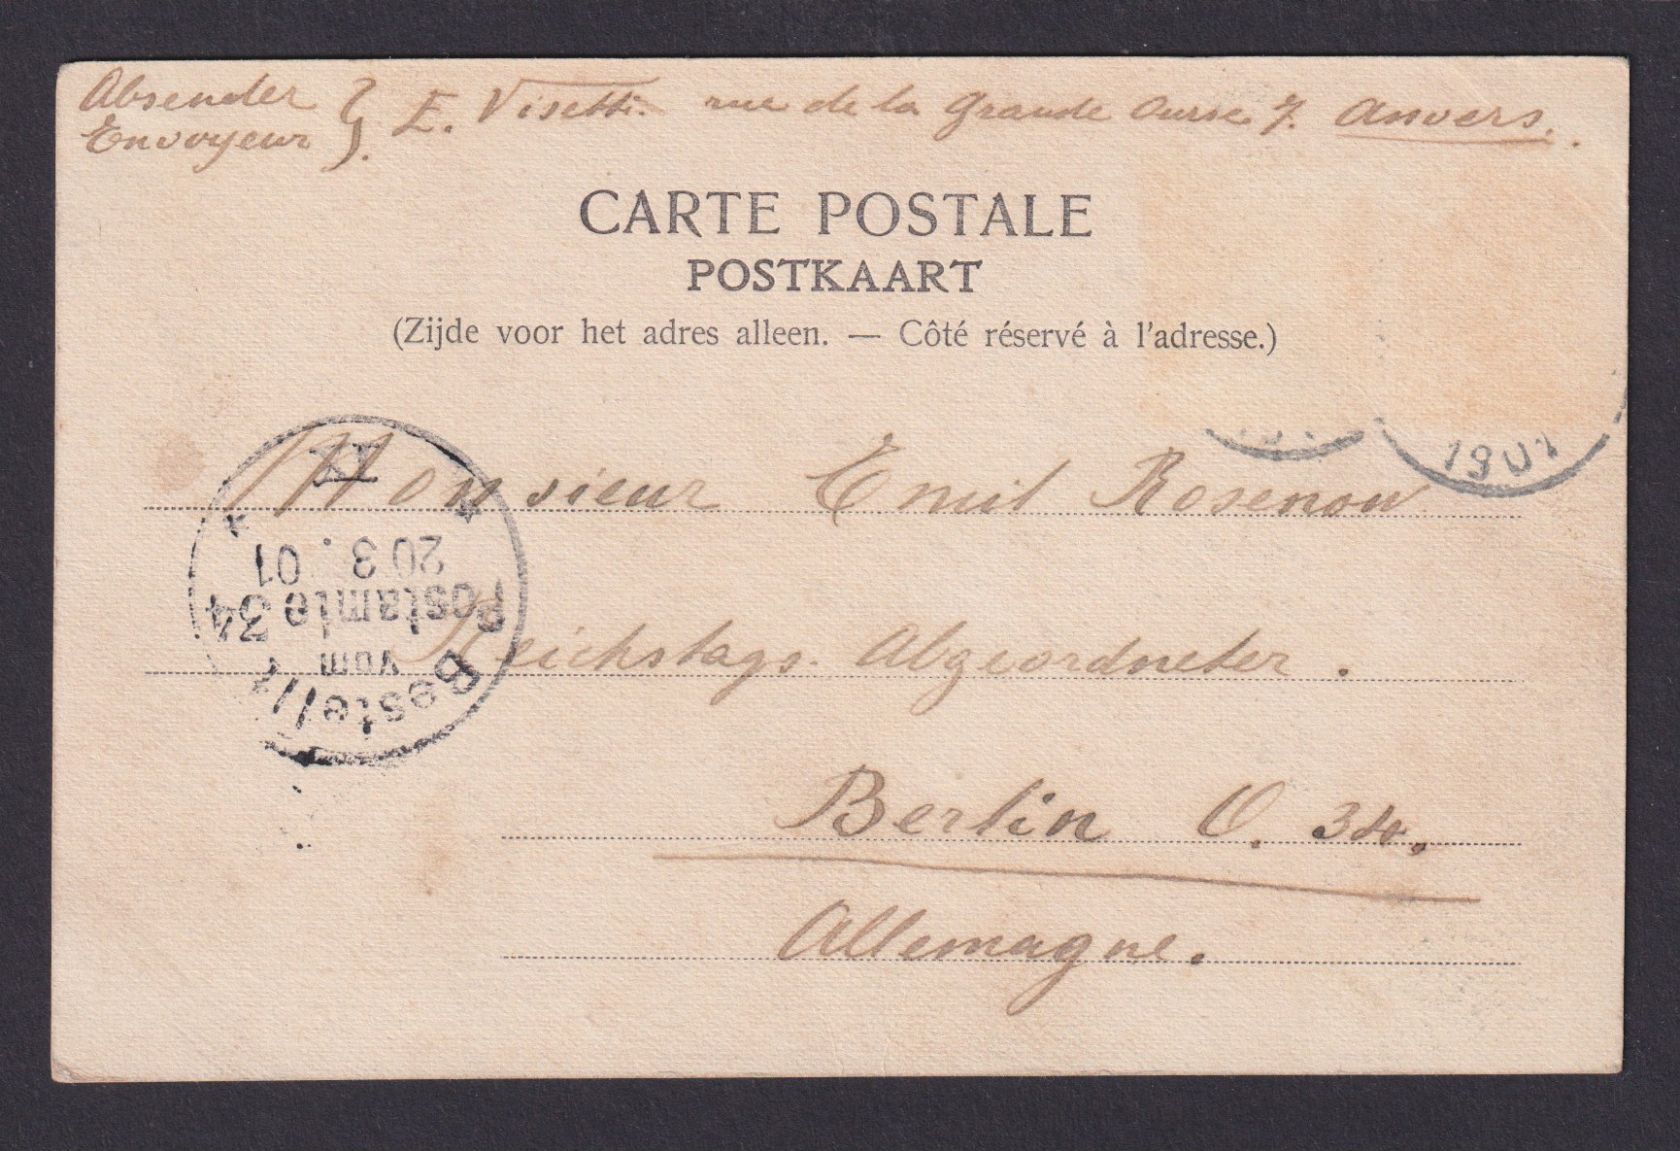 Absender
Envoyeur } E. Visetti. rue de la grande Ourse 7. Anvers.
CARTE POSTALE
POSTKAART
(Zijde voor het adres alleen. — Côté réservé à l'adresse.)
1901
Monsieur Emil Rosenow
Reichstags. Abgeordneter.
Berlin O. 34.
Allemagne.
Bestellt
vom
Postamte 34
20 3. 01